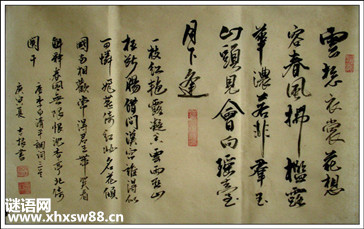 雲想衣裳花想
容春風拂檻露
華濃若非群玉
山頭見會向瑤臺
月下逢
一枝紅艷露凝香雲雨巫山
枉斷腸借問漢宮誰得似
可憐飛燕倚紅妝名花傾
國兩相歡常得君王帶笑看
解釋春風無限恨沉香亭北倚
闌干
唐李白清平調詞三首
庚寅夏
謎语网
www.xhxsw88.cn